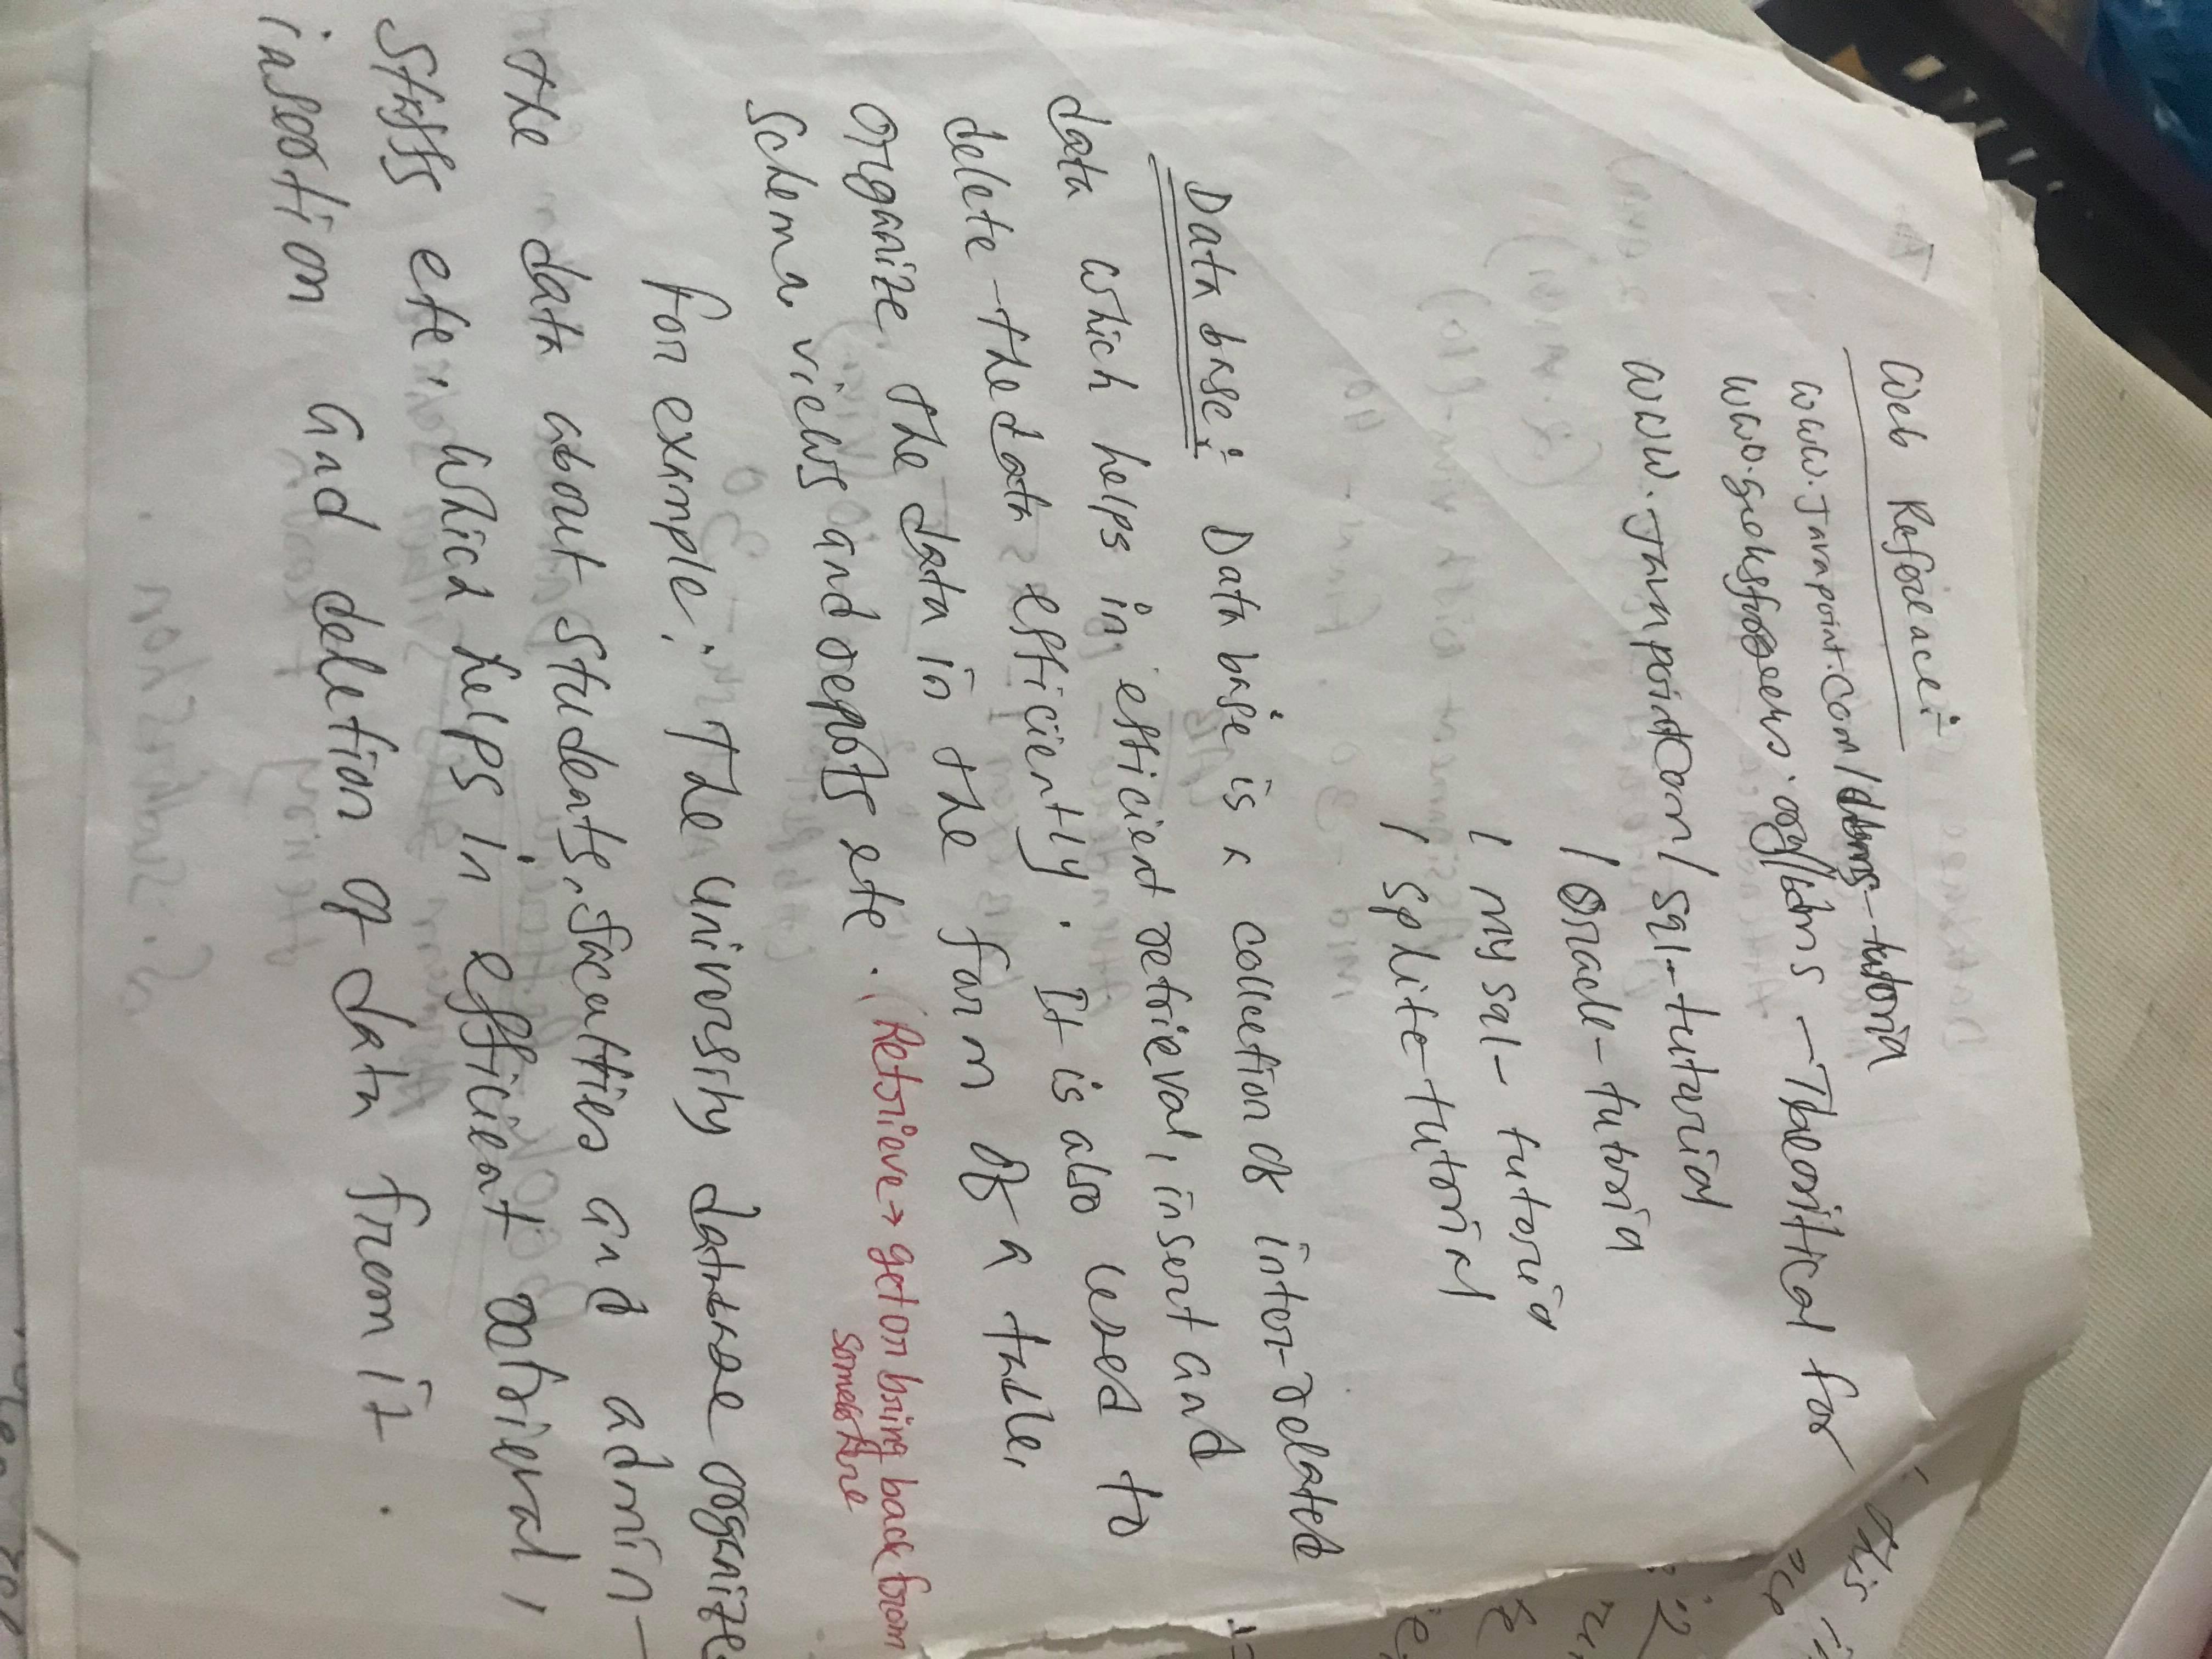 Web Reference:-
www.javapoint.com/dbms-tutoria
www.geeksforgeeks.org/bdms - Theoritical for
www.javapoint.com/sql-tutorial
/ Oracle-tutoria
/ mysql- tutoria
/ splite tutorial
Database: Database is a collection of inter-related
data which helps in efficient retrieval, insert and
delete the data efficiently. It is also used to
organize the data in the form of a table,
schema views and reports etc.
(Retrieve → get or bring back from
somewhere
For example: The university database organize
the data about students, faculties and admin-
staffs etc. Which helps in efficient retrieval,
insertion and deletion of data from it.
This in